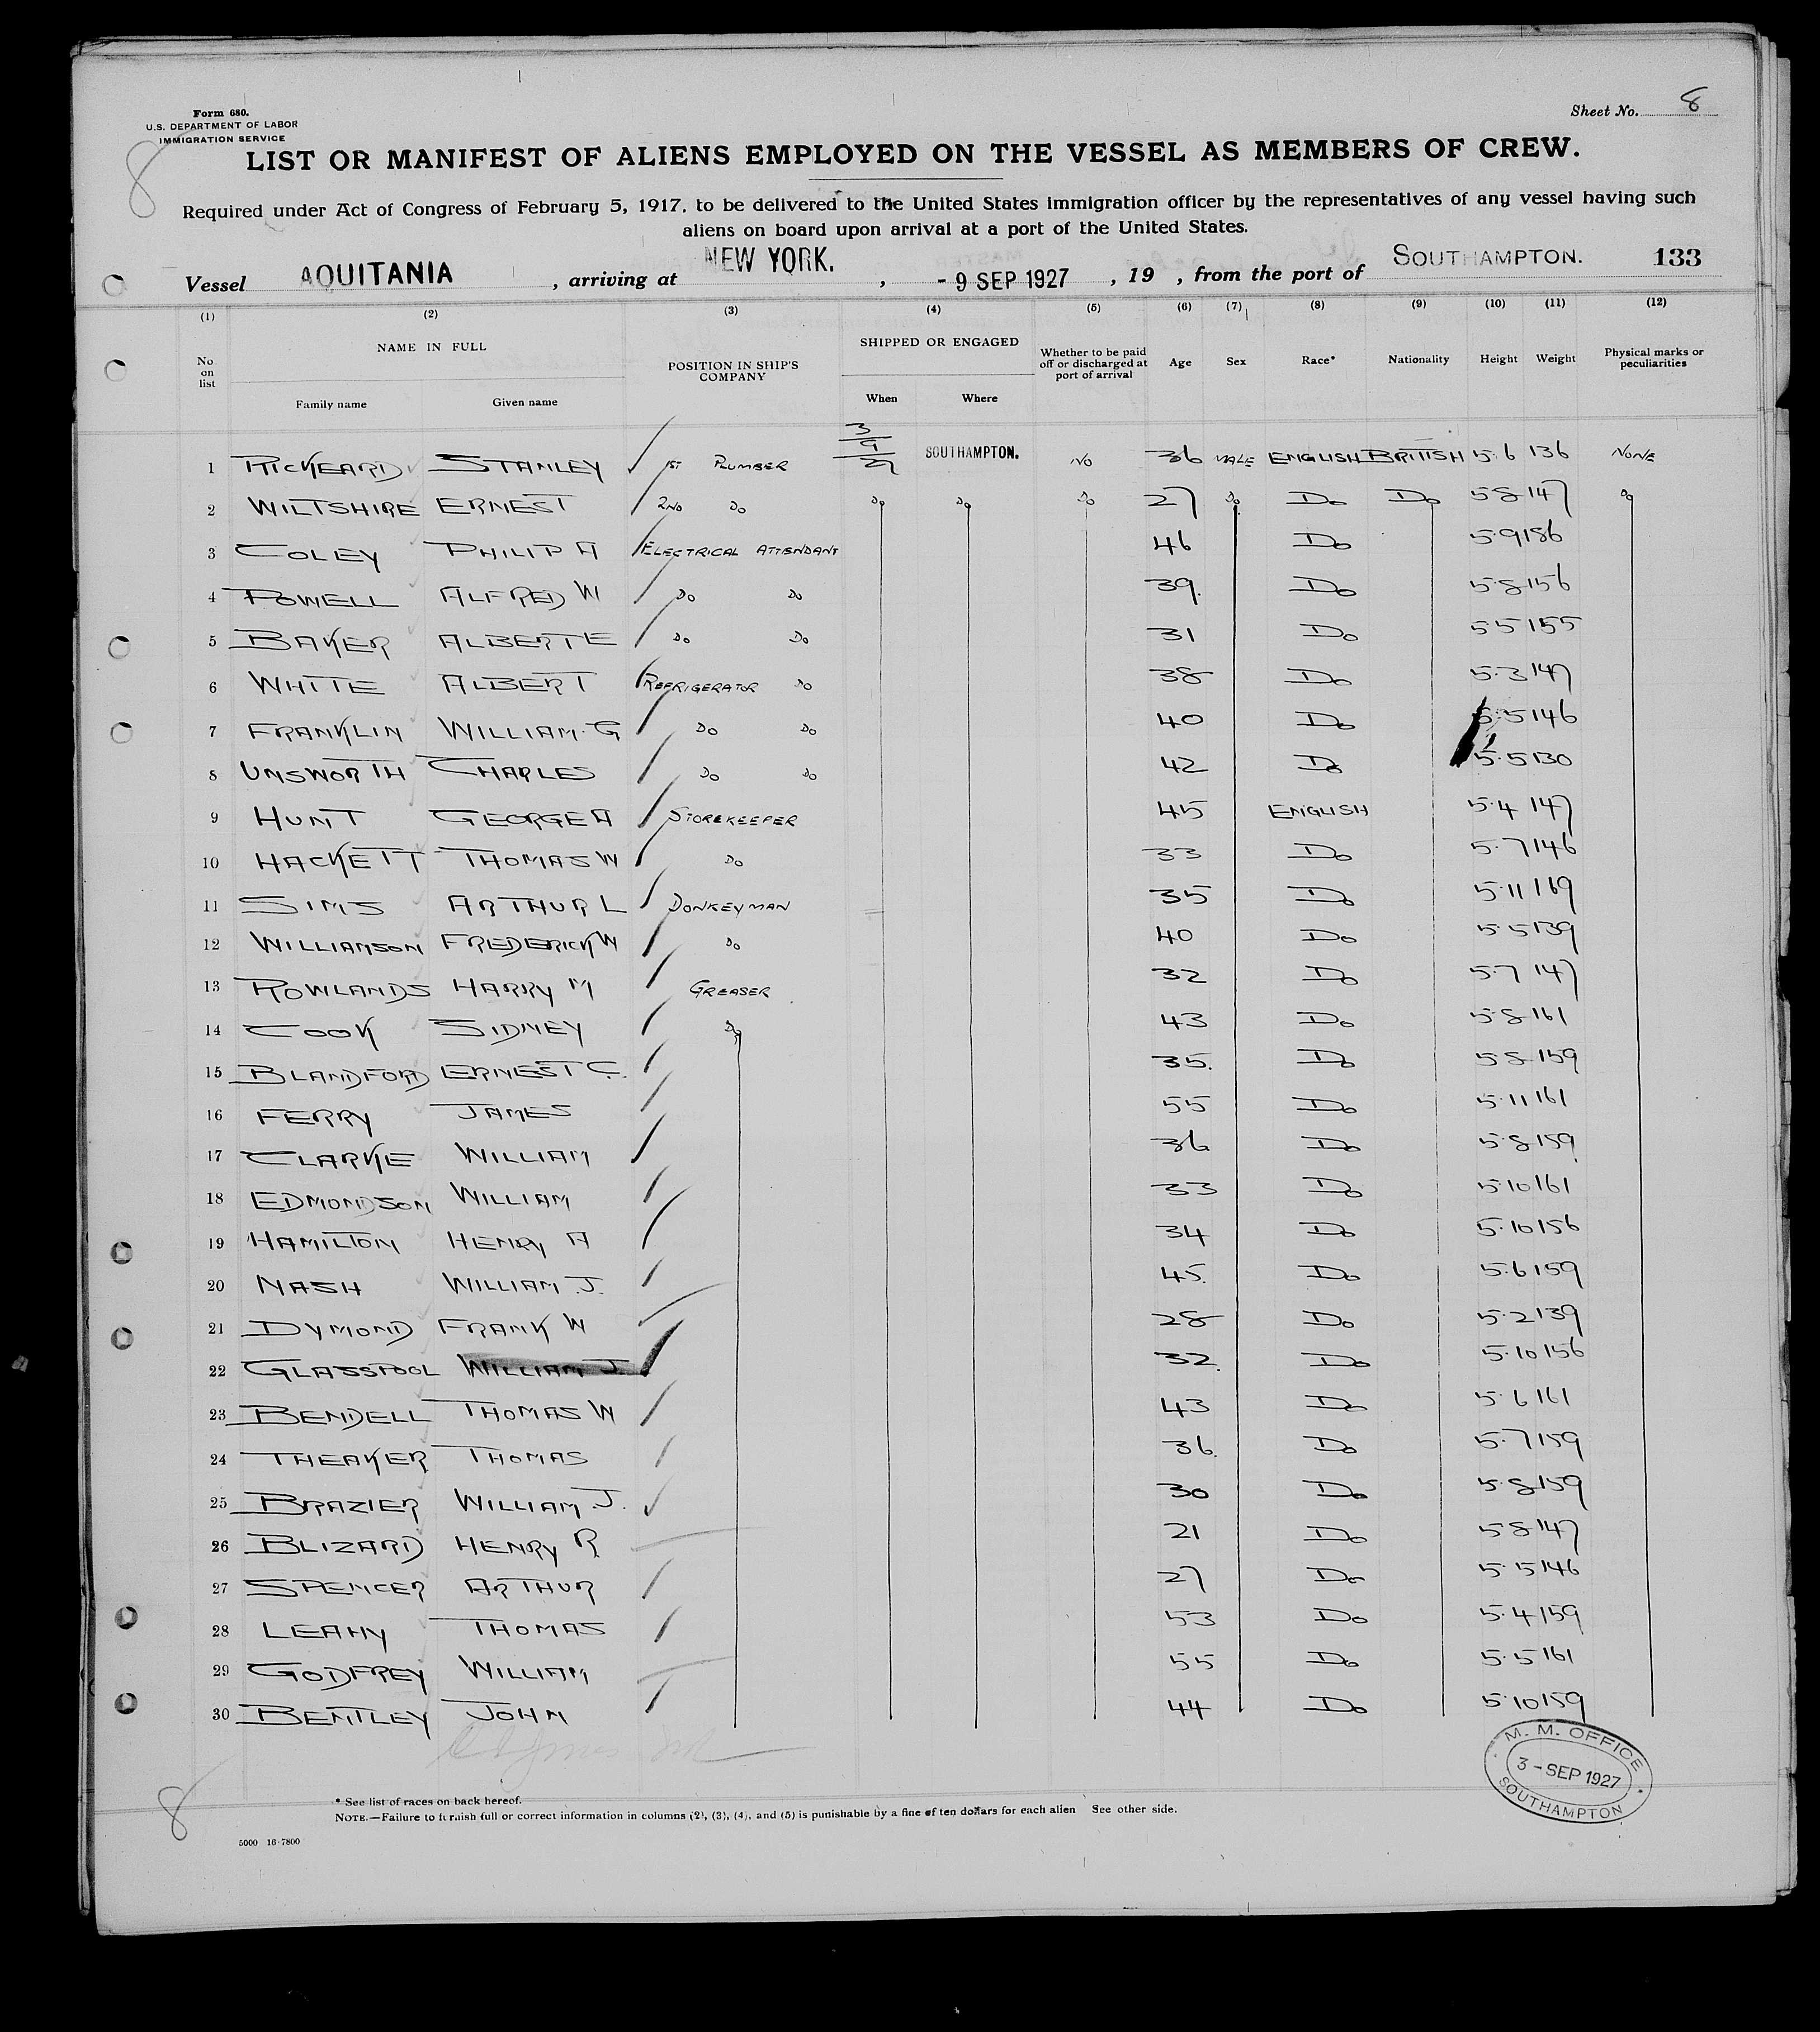 Form 680.
U.S. DEPARTMENT OF LABOR
IMMIGRATION SERVICE
Sheet No. 8
8
LIST OR MANIFEST OF ALIENS EMPLOYED ON THE VESSEL AS MEMBERS OF CREW.
Required under Act of Congress of February 5, 1917, to be delivered to the United States immigration officer by the representatives of any vessel having such
aliens on board upon arrival at a port of the United States.
Vessel AQUITANIA , arriving at NEW YORK. , - 9 SEP 1927 , 19 , from the port of SOUTHAMPTON. 133
(1) (2) (3) (4) (5) (6) (7) (8) (9) (10) (11) (12)
No on list NAME IN FULL Family name Given name POSITION IN SHIP'S COMPANY SHIPPED OR ENGAGED When Where Whether to be paid off or discharged at port of arrival Age Sex Race* Nationality Height Weight Physical marks or peculiarities
1 RICKEARD STANLEY 1ST PLUMBER 3/9/27 SOUTHAMPTON. NO 36 MALE ENGLISH BRITISH 5.6 136 NONE
2 WILTSHIRE ERNEST 2ND DO DO DO DO 27 DO DO DO 5 8 147 DO
3 COLEY PHILIP A ELECTRICAL ATTENDANT 46 DO 5.9 186
4 POWELL ALFRED W DO DO 39. DO 5.8 156
5 BAKER ALBERT E DO DO 31 DO 5 5 155
6 WHITE ALBERT REFRIGERATOR DO 38 DO 5.3 147
7 FRANKLIN WILLIAM.G DO DO 40 DO 5.5 146
8 UNSWORTH CHARLES DO DO 42 DO 5.5 130
9 HUNT GEORGE A STOREKEEPER 45 ENGLISH 5.4 147
10 HACKETT THOMAS W DO 33 DO 5.7 146
11 SIMS ARTHUR L DONKEYMAN 35 DO 5.11 169
12 WILLIAMSON FREDERICK W DO 40 DO 5.5 139
13 ROWLANDS HARRY M GREASER 32 DO 5.7 147
14 COOK SIDNEY DO 43 DO 5.8 161
15 BLANDFORD ERNEST C. 35. DO 5.8 159
16 FERRY JAMES 55 DO 5.11 161
17 CLARKE WILLIAM 36 DO 5.8 159
18 EDMONDSON WILLIAM 33 DO 5.10 161
19 HAMILTON HENRY A 34 DO 5.10 156
20 NASH WILLIAM J. 45. DO 5.6 159
21 DYMOND FRANK W 28 DO 5.2 139
22 GLASSPOOL WILLIAM J 32. DO 5.10 156
23 BENDELL THOMAS W 43 DO 5.6 161
24 THEAKER THOMAS 36. DO 5.7 159
25 BRAZIER WILLIAM J. 30 DO 5.8 159
26 BLIZARD HENRY R 21 DO 5 8 147
27 SPENCER ARTHUR 27 DO 5.5 146
28 LEAHY THOMAS 53 DO 5.4 159
29 GODFREY WILLIAM 55 DO 5.5 161
30 BENTLEY JOHN 44 DO 5.10 159
M. M. OFFICE
3 - SEP 1927
SOUTHAMPTON
8
* See list of races on back hereof.
NOTE.—Failure to furnish full or correct information in columns (2), (3), (4), and (5) is punishable by a fine of ten dollars for each alien See other side.
5000 16-7800